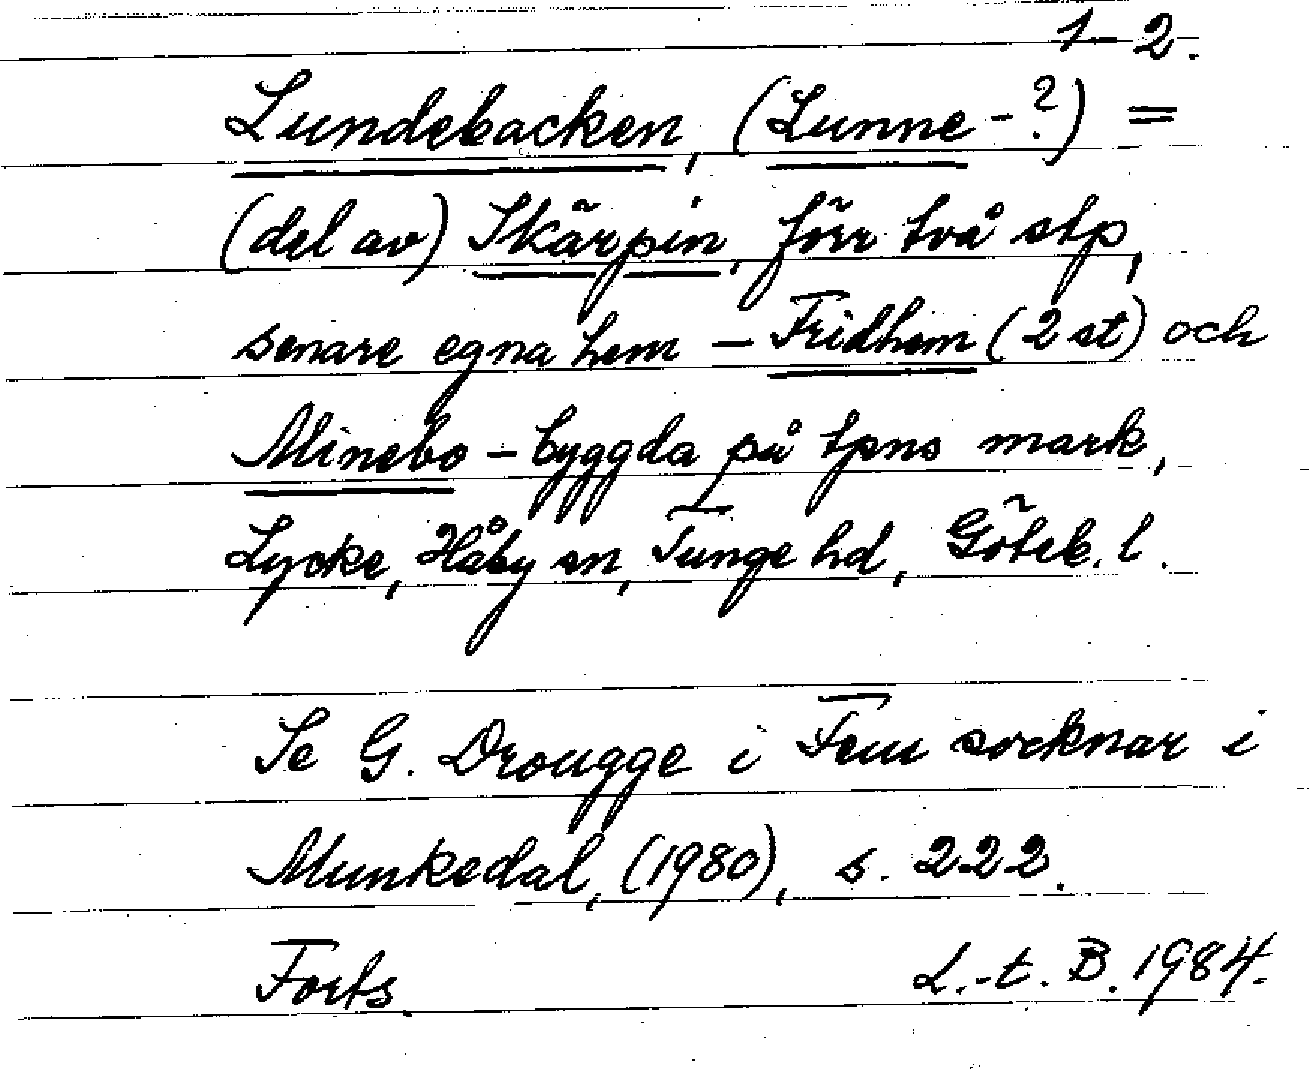 1-2.
Lundebacken, (Lunne-?) =
(del av) Skärpin, förr två stp,
senare egna hem - Fridhem (2 st) och
Minebo - byggda på tpns mark,
Lycke, Håby sn, Tunge hd, Göteb. l.
Se G. Drougge i Fem socknar i
Munkedal, (1980), s. 222.
Forts. L.-t. B. 1984.